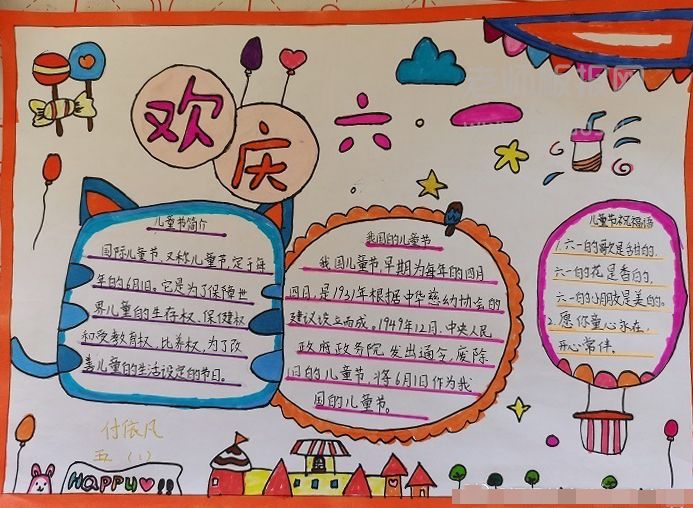 欢庆六一
儿童节简介
国际儿童节,又称儿童节,定于每
年的6月1日。它是为了保障世
界儿童的生存权、保健权
和受教育权、比养权,为了改
善儿童的生活设定的节日。
我国的儿童节
我国儿童节,早期为每年的四月
四日,是1931年根据中华慈幼协会的
建议设立而成。1949年12月,中央人民
政府政务院,发出通令,废除
旧的儿童节,将6月1日作为我
国的儿童节。
儿童节祝福语
1.六一的歌是甜的,
六一的花是香的,
六一的心是美的。
2.愿你童心永在,
开心常伴。
付依凡
五(1)
HAPPU !!